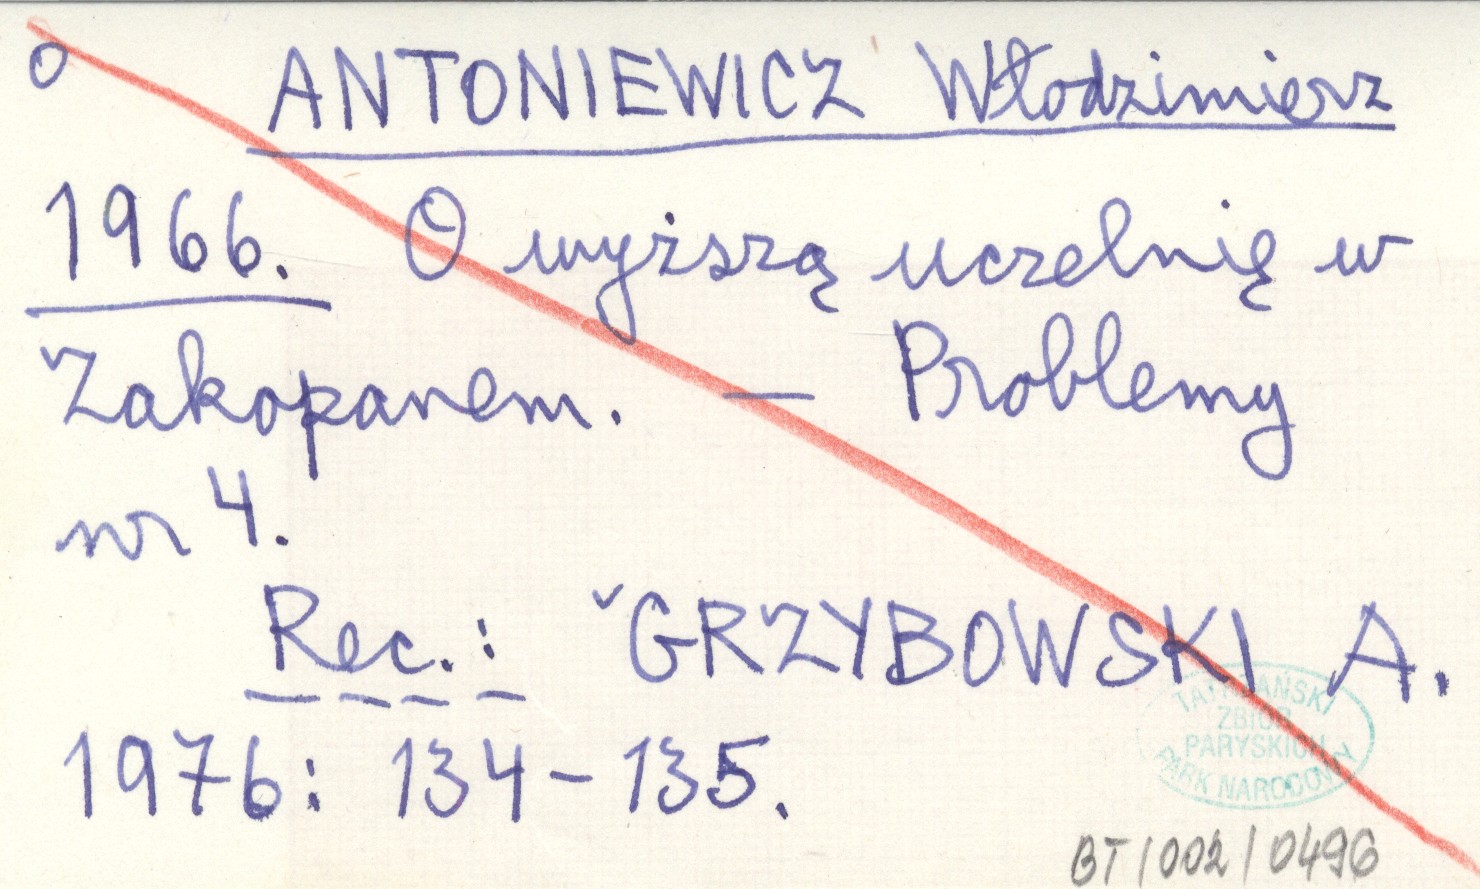 o ANTONIEWICZ Włodzimierz
1966. O wyższą uczelnię w
Zakopanem. — Problemy
nr 4.
Rec.: ˇGRZYBOWSKI A.
1976: 134-135.
TATRZAŃSKI
ZBIOR
PARYSKICH
PARK NARODOWY
BT/002/0496